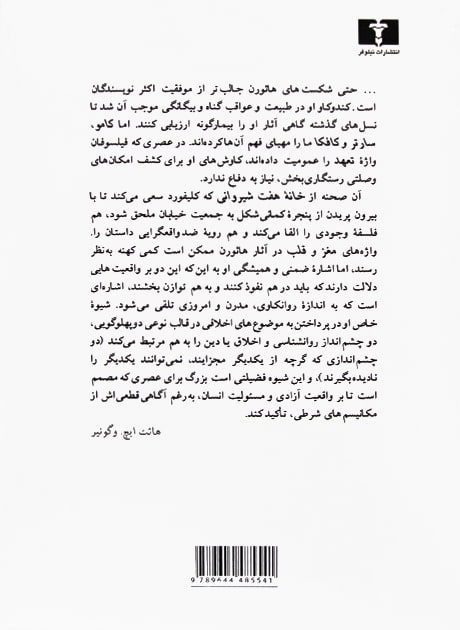 انتشارات نیلوفر
... حتی شکست های هاثورن جالب‌تر از موفقیت اکثر نویسندگان
است. کندوکاو او در طبیعت و عواقب گناه و بیگانگی موجب آن شد تا
نسل‌های گذشته گاهی آثار او را بیمارگونه ارزیابی کنند. اما کامو،
سارتر و کافکا ما را مهیای فهم آن‌ها کرده‌اند. در عصری که فیلسوفان
واژهٔ تعهد را عمومیت داده‌اند، کاوش‌های او برای کشف امکان‌های
وصلتی رستگاری‌بخش، نیاز به دفاع ندارد.
آن صحنه از خانهٔ هفت شیروانی که کلیفورد سعی می‌کند تا با
بیرون پریدن از پنجرهٔ کمانی‌شکل به جمعیت خیابان ملحق شود، هم
فلسفهٔ وجودی را القا می‌کند و هم رویهٔ ضدواقعگرایی داستان را.
واژه‌های مغز و قلب در آثار هاثورن ممکن است کمی کهنه به‌نظر
رسند، اما اشارهٔ ضمنی و همیشگی او به این‌که این دو بر واقعیت هایی
دلالت دارند که باید در هم نفوذ کنند و به هم توازن بخشند، اشاره‌ای
است که به اندازهٔ روانکاوی، مدرن و امروزی تلقی می‌شود. شیوهٔ
خاص او در پرداختن به موضوع‌های اخلاقی در قالب نوعی دوپهلوگویی،
دو چشم‌انداز روانشناسی و اخلاق یا دین را به هم مرتبط می‌کند (دو
چشم‌اندازی که گرچه از یکدیگر مجزایند، نمی‌توانند یکدیگر را
نادیده بگیرند)، و این شیوه فضیلتی است بزرگ برای عصری که مصمم
است تا بر واقعیت آزادی و مسئولیت انسان، به‌رغم آگاهی قطعی‌اش از
مکانیسم های شرطی، تأکید کند.
هائت ایچ. وگونیر
9 789644 485541